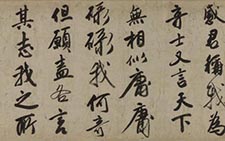 感君稱我為
奇士又言天下
無相似庸庸
碌碌我何奇
但願盍各言
其志我之所